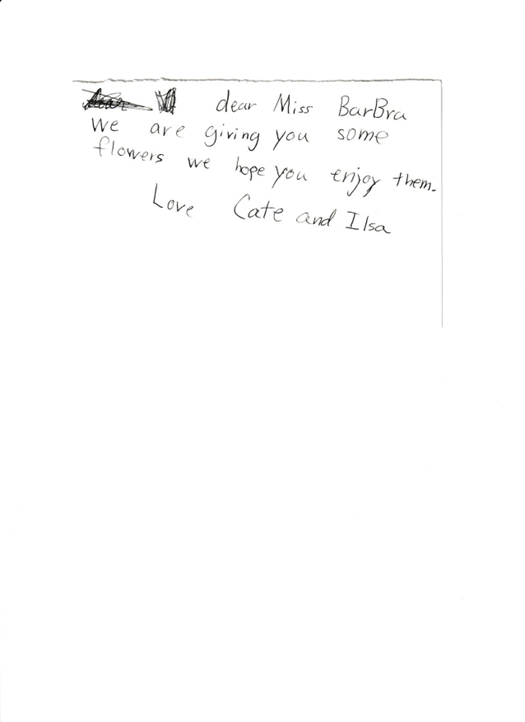 dear Miss BarBra
We are giving you some
flowers we hope you enjoy them.
Love Cate and Ilsa